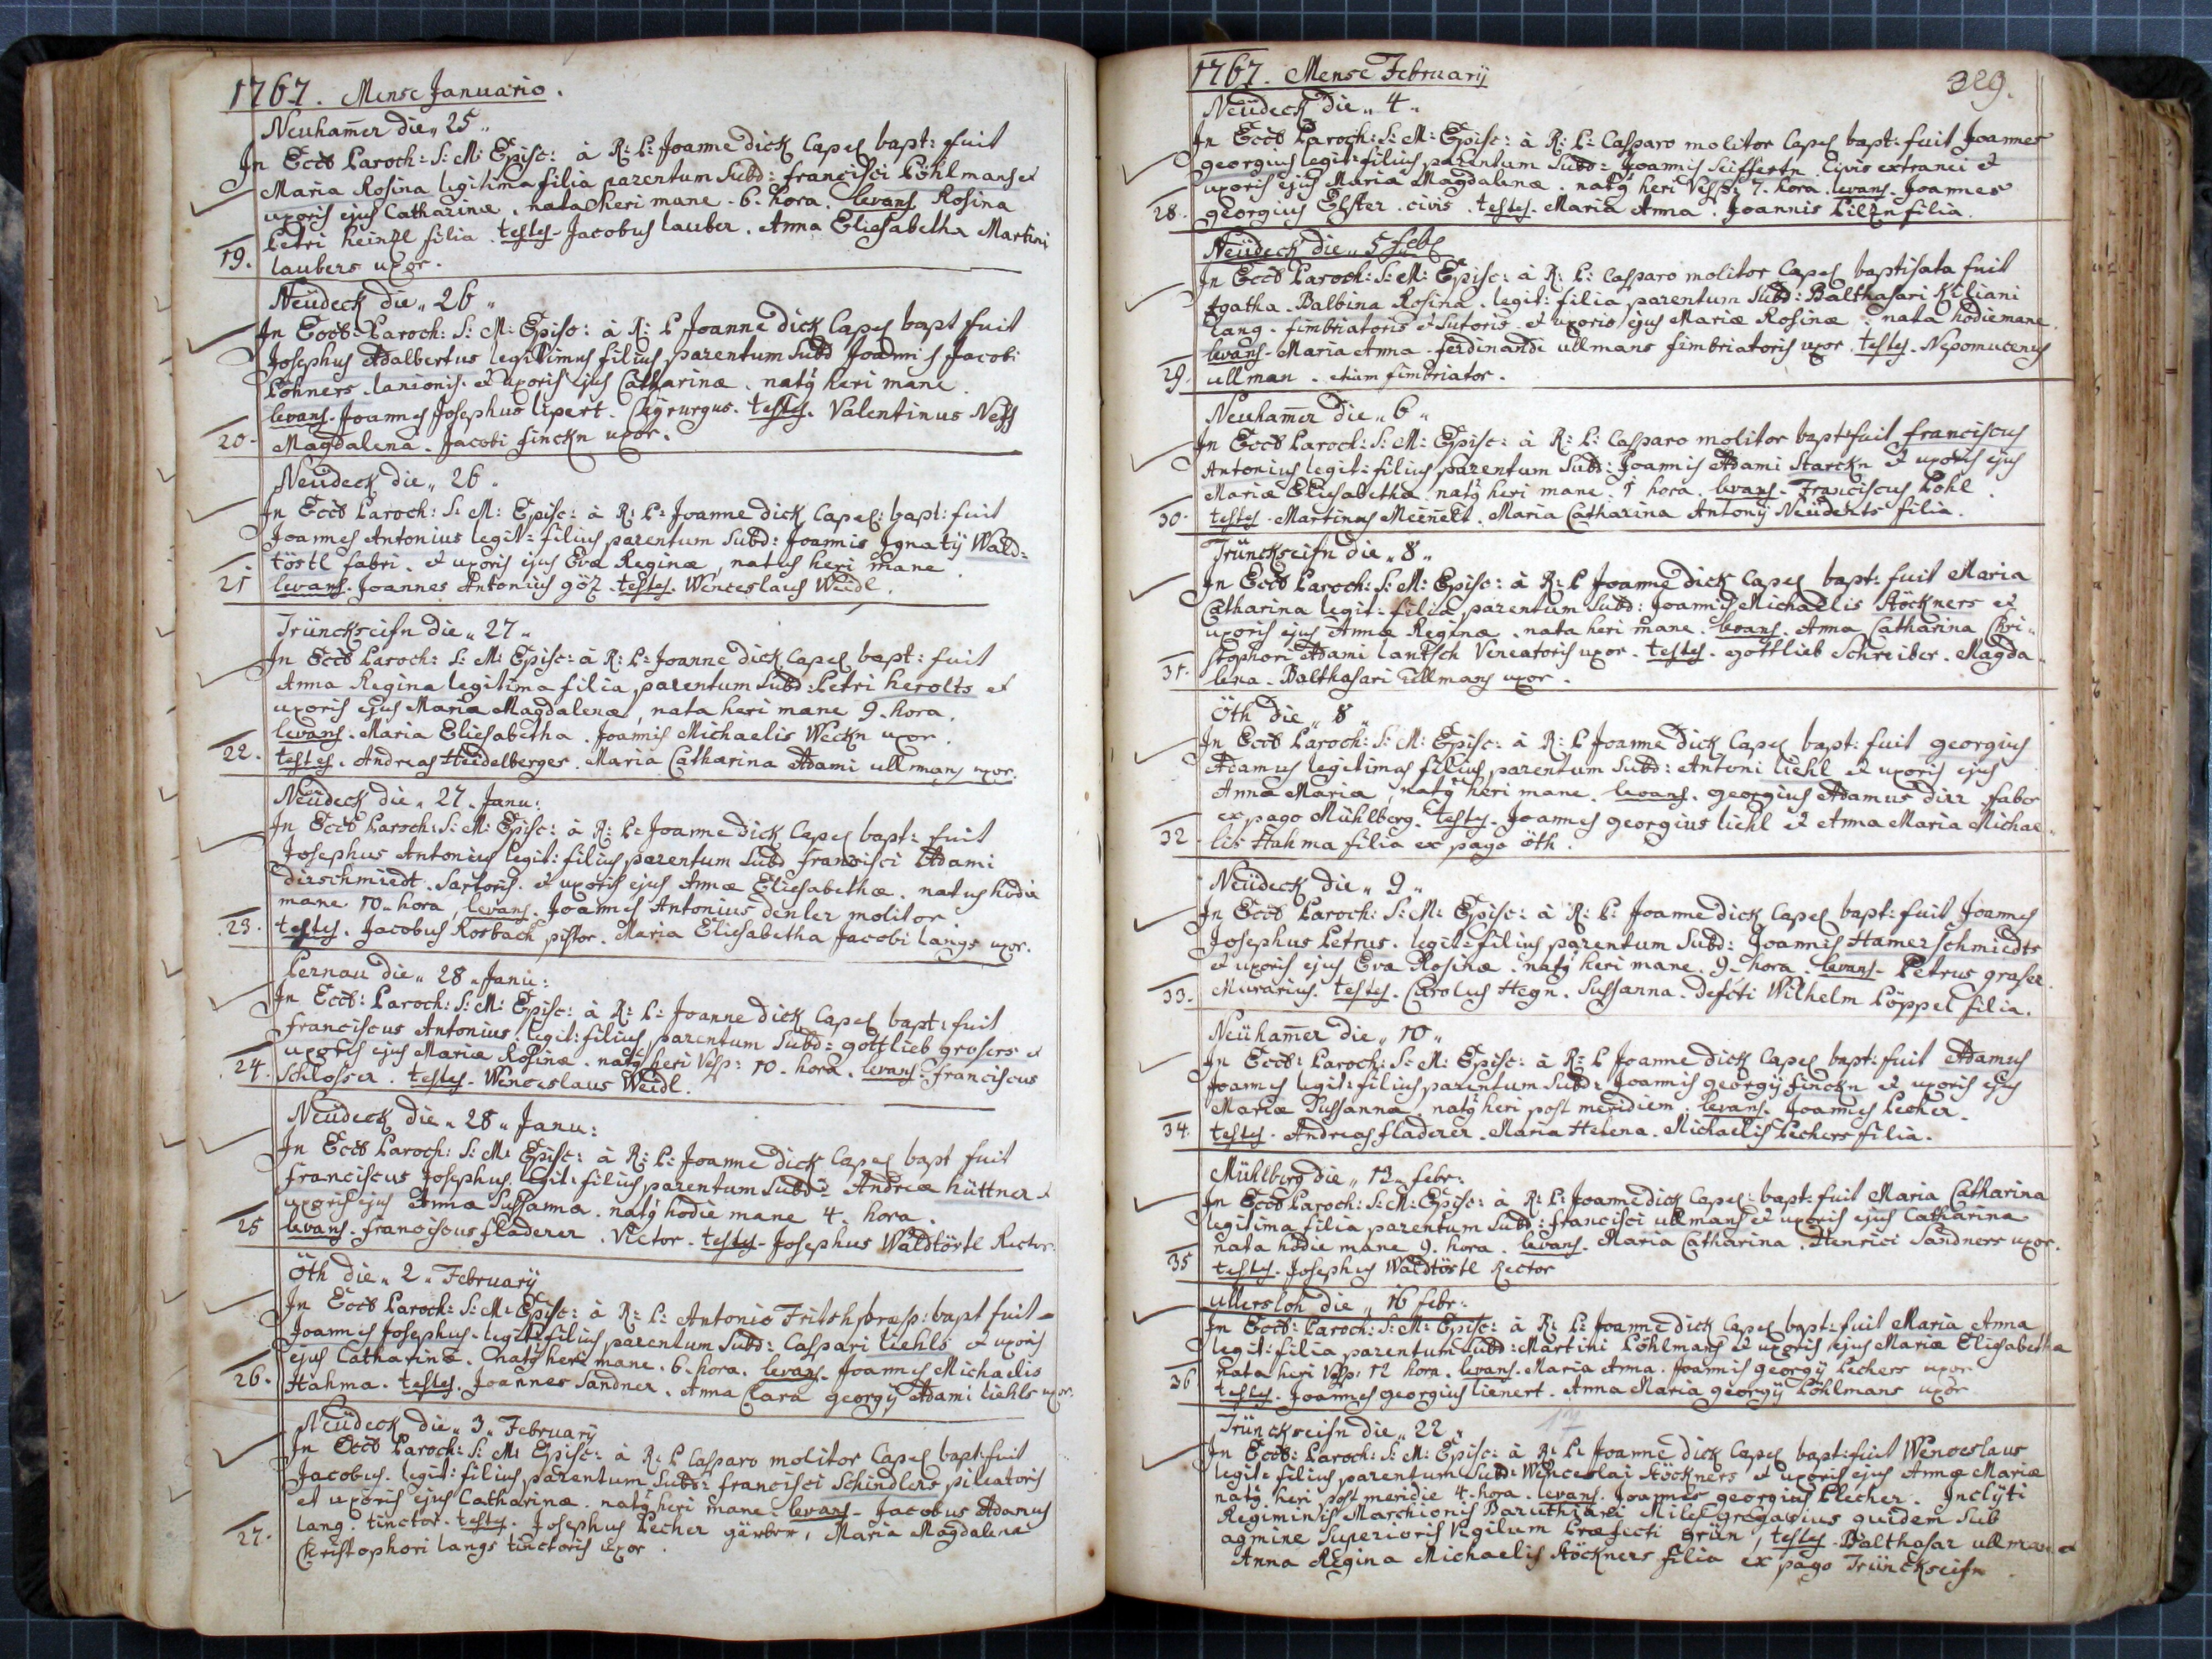 1767. Mense Januario.
Neuham̄er die „ 25 „
In Eccl̄ Paroch: S: M: Episc: à R: P: Joanne Dick Capel bapt: fuit
Maria Rosina legitima filia parentum Subd: francisci Pöhlmans et
uxoris ejus Catharinæ, nata heri mane. 6. hora. levans Rosina
Petri heinzl filia. testes. Jacobus lauber. Anna Eliesabetha Martini
19. laubers uxor.
Neüdeck die „ 26 „
In Eccl̄: Paroch: S: M: Episc: à R: P Joanne dick Capel bapt fuit
Josephus Adalbertus legitimus filius parentum Subd Joannis Jacobi
Pöhners. lanionis. et uxoris ejus Catharinæ, natq heri mane.
levans. Joannes Josephus lipert. testes. Valentinus
20. Magdalena. Jacobi finckn uxor.
Neüdeck die „ 26.
In Eccl̄ Paroch: S: M: Episc: à R: P: Joanne Dick Capel: bapt: fuit
Joannes Antonius legit: filius parentum Subd: Joannis Ignatÿ Wald=
töstl fabri. et uxoris ejus Evæ Reginæ, natus heri mane.
21 levans. Joannes Antonius göz. testes. Wenceslaus Weidl.
Trünckseifn die „ 27 „
In Eccl̄ Paroch: S: M: Episc: à R: P: Joanne dick Capel bapt: fuit
Anna Regina legitima filia parentum Subd: Petri herolts et
uxoris ejus Maria Magdalenæ, nata heri mane 9. hora.
levans. Maria Eliesabetha. Joannis Michaelis Weckn uxor.
22. testes. Andreas Heidelberger. Maria Catharina Adami ullmans uxor.
Neüdeck die „ 27 „ Janu:
In Eccl̄ Paroch: S: M: Episc: à R: P: Joanne dick Capel bapt: fuit
Josephus Antonius legit: filius parentum Subd francisci Adami
dirschmiedt. Sartoris. et uxoris ejus Annæ Eliesabethæ. natus hodie
mane 10. hora, levans. Joannes Antonius denler molitor
23. testes. Jacobus Rosbach pistor. Maria Eliesabetha Jacobi langs uxor.
Pernau die „ 28 „ Janu:
In Eccl̄: Paroch: S: M: Episc: à R: P: Joanne Dick Capel bapt: fuit
franciscus Antonius, legit: filius parentum Subd: gottlieb grosers et
uxoris ejus Maria Rosinæ. natq heri Vesp: 10. hora. levans. franciscus
24. Schlosser. testes. Wenceslaus Weidl.
Neüdeck die „ 28 „ Janu:
In Eccl̄ Paroch: S: M: Episc: à R: P: Joanne Dick Capel bapt fuit
franciscus Josephus. legit: filius parentum Subd: Andreæ hüttner et
uxoris ejus Annæ Sussanna. natq hodie mane 4. hora.
25 levans. franciscus fladerer. Vietor. testes. Josephus Waldtöstl Rector.
Öth die „ 2 „ Februarÿ
In Eccl̄ Paroch: S: M: Episc: à R: P: Antonio Fritsh bapt fuit
Joannes Josephus. legit: filius parentum Subd: Caspari liehls et uxoris
ejus Catharinæ. natq heri mane. 6. hora. levans. Joannes Michaelis
26. Hahma. testes. Joannes Sandner. Anna Clara georgÿ Adami liehls uxor.
Neüdeck die „ 3 „ Februarÿ
In Eccl̄ Paroch: S: M: Episc: à R: P Casparo molitor Capel bapt: fuit
Jacobus. legit: filius parentum Subd: francisci Schindlers pileatoris
et uxoris ejus Catharinæ. natq heri mane. levans. Jacobus Adamus
lang. tinctor. testes. Josephus Pecher gärber, Maria Magdalena
27. Christophori langs tinctoris uxor.
1767. Mense Februarÿ
329.
Neüdeck die „ 4 „
In Eccl̄ Paroch: S: M: Episc: à R: P: Casparo molitor Capel bapt: fuit Joannes
georgius legit: filius parentum Subd: Joannis Seiffertn. Civis extranei et
uxoris ejus Maria Magdalenæ. natq heri Vesp: 7. hora. levans. Joannes
28. georgius Elster. civis. testes. Maria Anna. Joannis Pilzn filia.
Neüdeck die „ 5 feb
In Eccl̄ Paroch: S: M: Episc: à R: P: Casparo molitor Capel baptisata fuit
Agatha. Balbina Rosina. legit: filia parentum Subd: Balthasari Kiliani
lang. fimbriatoris et Sutoris. et uxoris ejus Mariæ Rosinæ. nata hodie mane.
levans. Maria Anna. ferdinandi ullmans fimbriatoris uxor. testes. Nepomucenus
29. ullman. etiam fimbriator.
Neuham̄er die „ 6 „
In Eccl̄ Paroch: S: M: Episc: à R: P: Casparo molitor bapt: fuit franciscus
Antonius legit: filius parentum Subd: Joannis Adami Starckn et uxoris ejus
Mariæ Eliesabetha. natq heri mane. 1 hora. levans. Franciscus Pöhl.
30. testes. Martinus Meinelt. Maria Catharina Antonÿ Neüderts filia.
Trünckseifn die „ 8 „
In Eccl̄ Paroch: S: M: Episc: à R: P Joanne dick Capel bapt: fuit Maria
Catharina legit: filia parentum Subd: Joannis Michaelis Stöckners et
uxoris ejus Annæ Reginæ. nata heri mane. levans. Anna Catharina Chri=
stophori Adami lantsch Vineatoris uxor. testes. gottlieb Schreiber. Magda=
31. lena. Balthasari Ullmans uxor.
Öth die „ 8 „
In Eccl̄ Paroch: S: M: Episc: à R: P Joanne dick Capel bapt: fuit georgius
Adamus legitimus filius parentum Subd: Antoni liehl et uxoris ejus
Anna Maria, natq heri mane. levans. georgius Adamus dirr faber
ex pago Mühlberg. testes. Joannes georgius liehl et Anna Maria Michae=
32. lis Hahma filia ex pago öth.
Neüdeck die „ 9 „
In Eccl̄ Paroch: S: M: Episc: à R: P: Joanne dick Capel bapt: fuit Joannes
Josephus Petrus. legit: filius parentum Subd: Joannis Hamerschmiedts
et uxoris ejus Evæ Rosinæ. natq heri mane. 9. hora. levans. Petrus graser
33. Murarius. testes. Carolus Hegn. Sussanna. Defcti Wilhelm Pöppel filia.
Neüham̄er die „ 10 „
In Eccl̄: Paroch: S: M: Episc: à R: P Joanne dick Capel bapt: fuit Adamus
Joannes legit: filius parentum Subd: Joannis georgÿ finckn et uxoris ejus
Mariæ Sussanna. natq heri post meridiem. levans. Joannes Pecher.
34. testes. Andreas fladerer. Maria Helena. Michaelis Pechers filia.
Mühlberg die „ 13 „ febr:
In Eccl̄ Paroch: S: M: Episc: à R: P: Joanne dick Capel: bapt: fuit Maria Catharina
legitima filia parentum Subd: francisci ullmans et uxoris ejus Catharina
nata hodie mane 9. hora. levans. Maria Catharina. Henrici Sandners uxor.
35 testes. Josephus Waldtöstl Rector
Ullersloh die „ 16 febr:
In Eccl̄: Paroch: S: M: Episc: à R: P: Joanne dick Capel bapt: fuit Maria Anna
legit: filia parentum Subd: Martini Pöhlmans et uxoris ejus Mariæ Eliesabetha
nata heri Vesp: 12 hora. levans. Maria Anna. Joannis georgÿ Pechers uxor
36 testes. Joannes georgius lienert. Anna Maria georgÿ Pöhlmans uxor
Trünckseifn die „ 22 „
In Eccl̄: Paroch: S: M: Episc: à R: P: Joanne dick Capel bapt: fuit Wenceslaus
legit: filius parentum Subd: Wenceslai Stöckners et uxoris ejus Annæ Mariæ
natq heri post meridie 4. hora. levans. Joannes georgius Plecher. Inclÿti
Regiminis Marchionis Baruthiani Miles gregarius quidem Sub
agmine Superioris Vigilum Præfecti grün, testes. Balthasar ullman et
Anna Regina Michaelis Stöckners filia ex pago Trünckseifn.